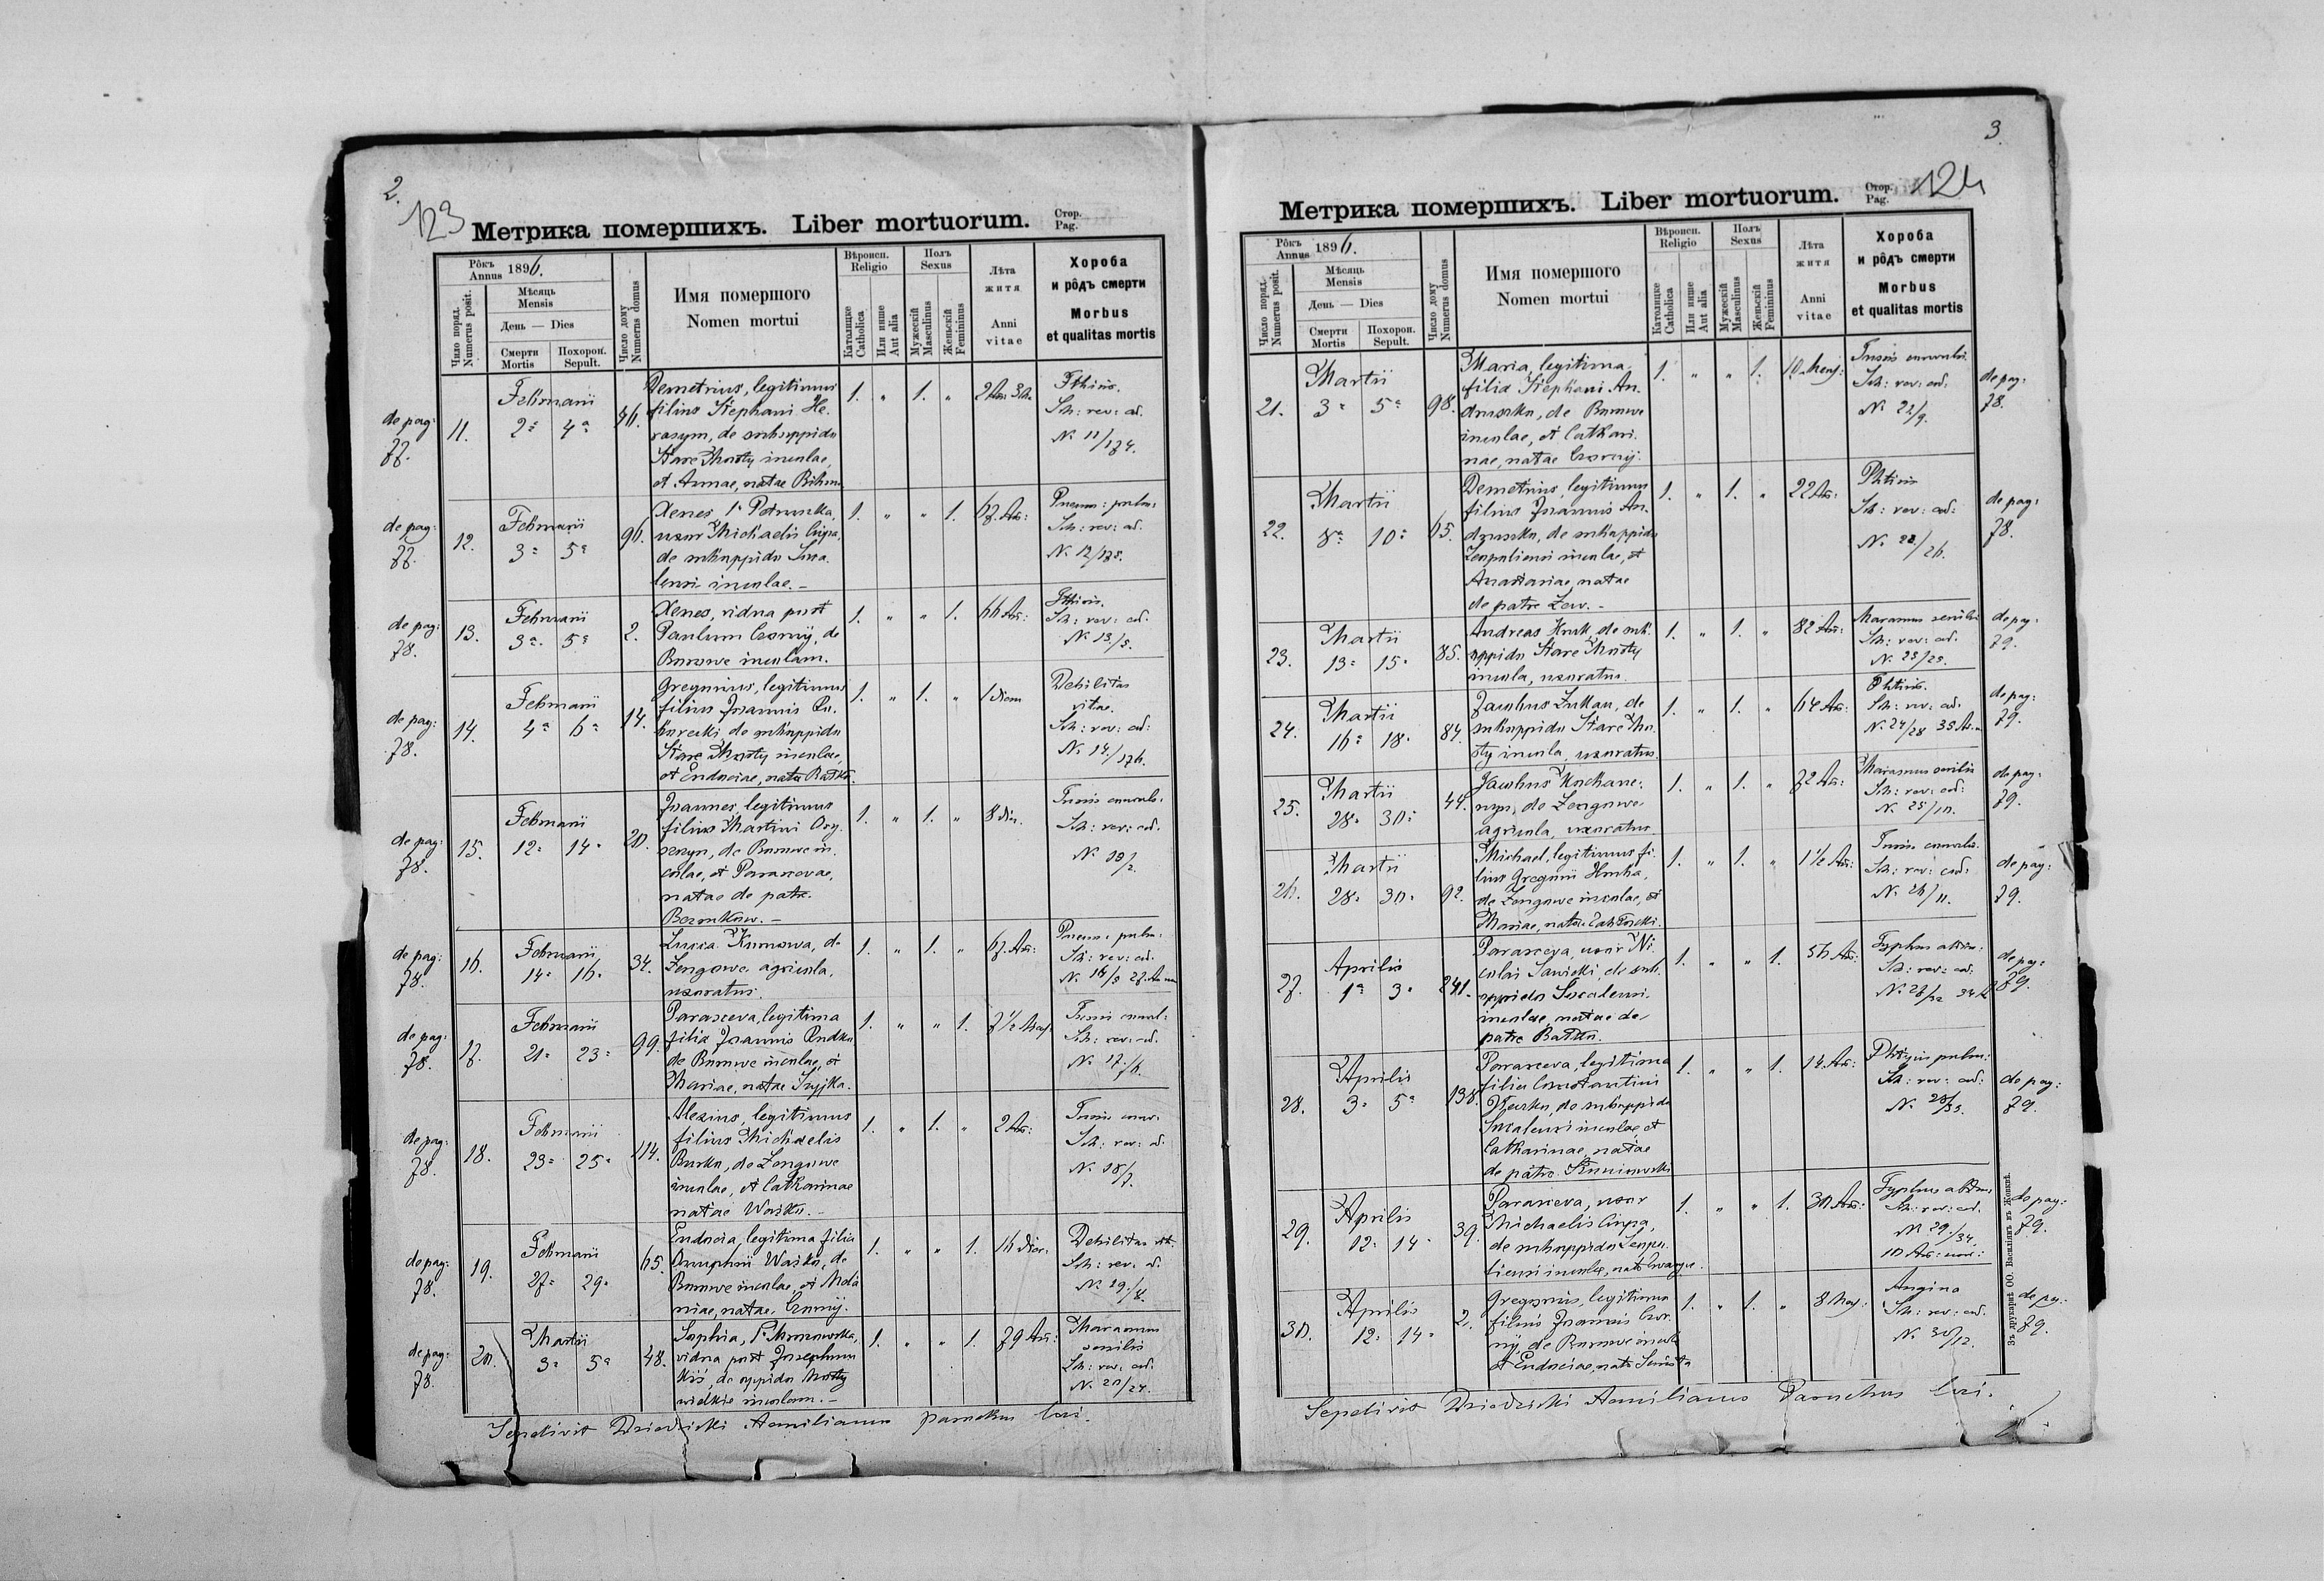 2.
123
Метрика помершихъ. Liber mortuorum.
Стор.
Pag.
Рôкъ
Annus 1896.
Число поряд.
Numerus posit.
Мѣсяць
Mensis
День — Dies
Смерти
Mortis
Похорон.
Sepult.
Число дому
Numerus domus
Имя помершого
Nomen mortui
Вѣроисп.
Religio
Католицке
Catholica
Или инше
Aut alia
Полъ
Sexus
Мужескій
Masculinus
Женьскій
Femininus
Лѣта
житя
Anni
vitae
Хороба
и рôдъ смерти
Morbus
et qualitas mortis
de pag:
77.
11.
Februarii
2a 4a
46.
Demetrius, legitimus
filius Stephani He-
rasym, de suboppido
Stare Mosty incolae,
et Annae, natae
1. " 1. "
Fthisis.
Sch: rev: ad.
N. 11/174.
de pag:
77.
12.
Februarii
3a 5a
96.
Xenes 1o Petruszka,
uxor Michaelis Ciupa,
de suboppido Soca-
lensi incolae. –
1. " " 1.
67. An:
Pneum: pulm:
Sch: rev: ad.
N. 12/175.
de pag:
78.
13.
Februarii
3a 5a
2.
Xenes, vidua post
Paulum Czornij, de
Borowe incolam.
1. " " 1.
66 An:
Fthisis.
Sch: rev: ad.
N. 13/5.
de pag:
78.
14.
Februarii
4a 6a
14.
Gregorius, legitimus
filius Joannis
de suboppido
Stare Mosty incolae,
et Eudociae, natae
1. " 1. "
1 diem
Debilitas
vitae.
Sch: rev: ad:
N. 14/176.
de pag:
78.
15.
Februarii
12a 14a
20.
Joannes, legitimus
filius Martini
de Borowe in-
colae, et Parascevae,
natae de patre
1. " 1. "
8 dies.
Tussis convuls.
Sch: rev: ad.
N. 15/2.
de pag:
78.
16.
Februarii
14a 16a
34.
agricola,
uxoratus.
1. " 1. "
67. An:
Pneum: pulm:
Sch: rev: ad:
N. 16/3
de pag:
78.
17.
Februarii
21a 23a
99.
Parasceva, legitima
filia Joannis Rudko
de Borowe incolae, et
Mariae, natae
1. " " 1.
7 1/2 Mens:
Tussis convul:
Sch: rev: ad.
N. 17/6.
de pag:
78.
18.
Februarii
23a 25a
114.
Alexius, legitimus
filius Michaelis
incolae, et Catharinae
natae Waśko. –
1. " 1. "
2 An:
Tussis conv.
Sch: rev: ad.
N. 18/7.
de pag:
78.
19.
Februarii
27a 29a
65.
Eudocia, legitima filia
Onuphrii Waśko, de
Borowe incolae, et Mela-
niae, natae Czornij.
1. " " 1.
16 dies.
Debilitas vit.
Sch: rev: ad.
N. 19/8.
de pag:
78.
20.
Martii
3a 5a
48.
Sophia,
vidua post Josephum
Kiś, de oppido Mosty
wielkie incolam. –
1. " " 1.
79 An:
Marasmus
senilis
Sch: rev: ad.
N. 20/24.
Sepelivit Dziedzicki Aemilianus parochus loci.
3
124
Метрика помершихъ. Liber mortuorum.
Стор.
Pag.
Рôкъ
Annus 1896.
Число поряд.
Numerus posit.
Мѣсяць
Mensis
День — Dies
Смерти
Mortis
Похорон.
Sepult.
Число дому
Numerus domus
Имя помершого
Nomen mortui
Вѣроисп.
Religio
Католицке
Catholica
Или инше
Aut alia
Полъ
Sexus
Мужескій
Masculinus
Женьскій
Femininus
Лѣта
житя
Anni
vitae
Хороба
и рôдъ смерти
Morbus
et qualitas mortis
21.
Martii
3a 5a
98.
Maria, legitima
filia Stephani An-
druszko, de Borowe
incolae, et Cathari-
nae, natae Czornij.
1. " " 1.
10. Mens:
Tussis convuls.
Sch: rev: ad.
N. 21/9.
de pag:
78.
22.
Martii
8a 10a
65.
Demetrius, legitimus
filius Joannis An-
druszko, de suboppido
incolae, et
Anastasiae, natae
de patre Lew. –
1. " 1. "
22 An:
Phtisis
Sch: rev: ad:
N. 22/26.
de pag:
78.
23.
Martii
13a 15a
85.
Andreas Kruk, de sub-
oppido Stare Mosty
incola, uxoratus.
1. " 1. "
82 An:
Marasmus senilis
Sch: rev: ad.
N. 23/25.
de pag:
79.
24.
Martii
16a 18a
84.
Jacobus Lukau, de
suboppido Stare Mo-
sty incola, uxoratus.
1. " 1. "
64 An:
Phtisis.
Sch: rev: ad.
N. 24/28
de pag:
79.
25.
Martii
28a 30a
44.
Jacobus
agricola, uxoratus.
1. " 1. "
72 An:
Marasmus senilis
Sch: rev: ad:
N. 25/10.
de pag:
79.
26.
Martii
28a 30a
92.
Michael, legitimus fi-
lius Gregorii
incolae, et
Mariae, natae
1. " 1. "
1 1/2 An:
Tussis convuls.
Sch: rev: ad:
N. 26/11.
de pag:
79.
27.
Aprilis
1a 3a
241.
Parasceva, uxor Ni-
colai Sawicki, de sub-
oppido Socalensi
incolae, natae de
patre
1. " " 1.
56 An:
Typhus abdom:
Sch: rev: ad.
de pag:
79.
28.
Aprilis
3a 5a
138.
Parasceva, legitima
filia Constantini
de suboppido
Socalensi incolae et
Catharinae, natae
de patre
1. " " 1.
14. An:
Phtysis pulm:
Sch: rev: ad:
N. 28/33.
de pag:
79.
29.
Aprilis
12a 14a
39.
Parasceva, uxor
Michaelis Ciupa,
de suboppido
incolae,
1. " " 1.
30 An:
Typhus abdom.
Sch: rev: ad.
N. 29/34.
de pag:
79.
30.
Aprilis
12a 14a
2.
Gregorius, legitimus
filius Joannis Czor-
nij, de Borowe incolae
et Eudociae,
1. " 1. "
8 Mens:
Angina
Sch: rev: ad.
N. 30/12.
de pag:
79.
Зъ друкарнѣ ОО. Василіянъ въ Жовквѣ.
Sepelivit Dziedzicki Aemilianus Parochus loci.